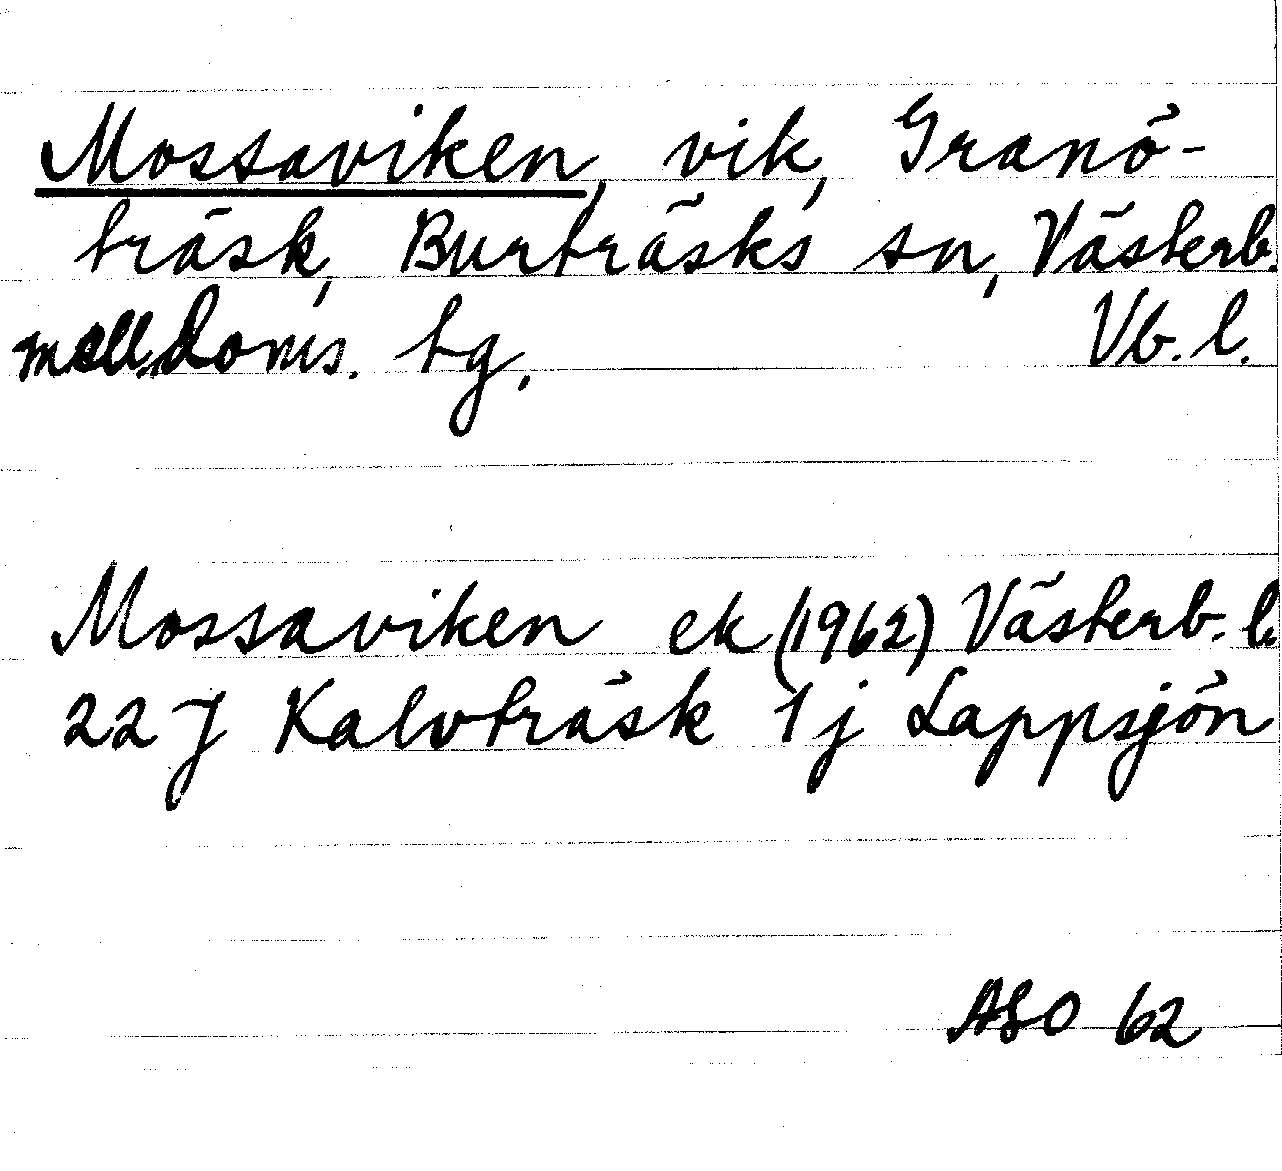 Mossaviken, vik, Granö-
träsk, Burträsks sn, Västerb.
mell. doms. tg. Vb. l.
Mossaviken ek (1962) Västerb. l.
22 J Kalvträsk 1j Lappsjön
ASO 62